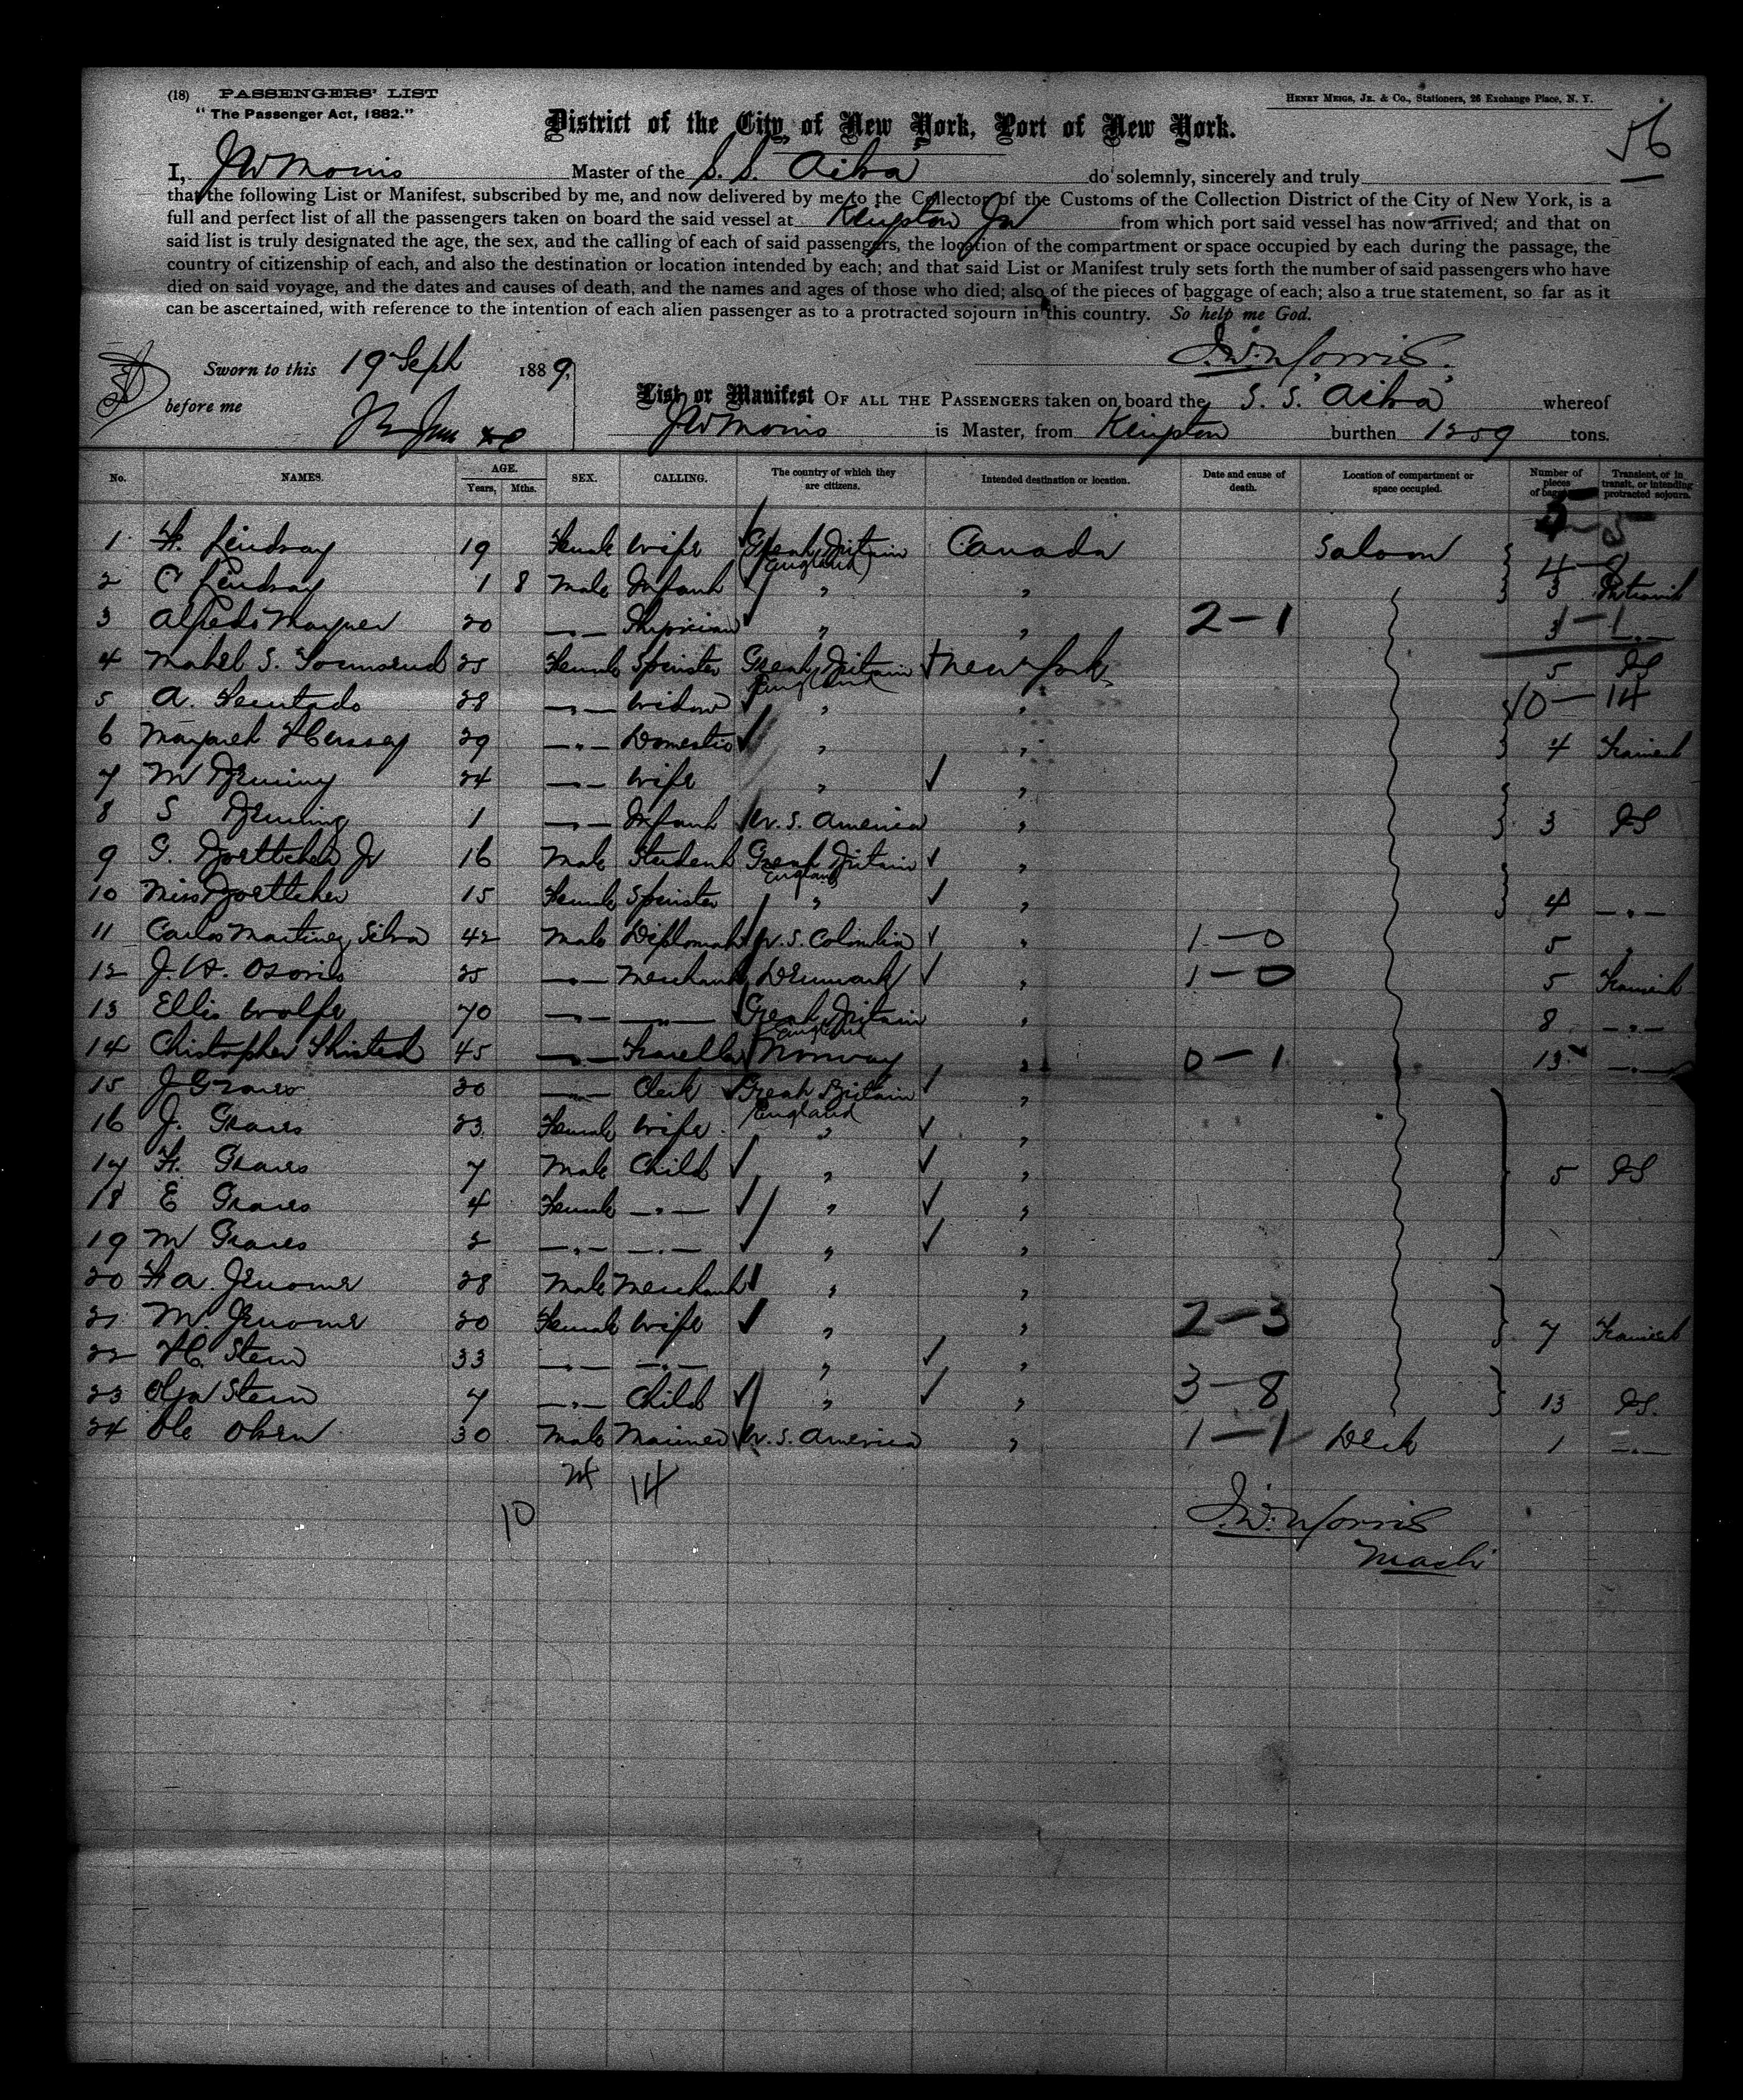 (18) PASSENGERS' LIST
HENRY MEIGS, JR. & CO., Stationers, 26 Exchange Place, N. Y.
"The Passenger Act, 1882."
District of the City of New York, Port of New York.
56
I, J W Morris Master of the S. S. do solemnly, sincerely and truly
that the following List or Manifest, subscribed by me, and now delivered by me to the Collector of the Customs of the Collection District of the City of New York, is a
full and perfect list of all the passengers taken on board the said vessel at Kingston Ja from which port said vessel has now arrived; and that on
said list is truly designated the age, the sex, and the calling of each of said passengers, the location of the compartment or space occupied by each during the passage, the
country of citizenship of each, and also the destination or location intended by each; and that said List or Manifest truly sets forth the number of said passengers who have
died on said voyage, and the dates and causes of death, and the names and ages of those who died; also of the pieces of baggage of each; also a true statement, so far as it
can be ascertained, with reference to the intention of each alien passenger as to a protracted sojourn in this country. So help me God.
J. W. Morris.
Sworn to this 19 Sept 1889,
before me
List or Manifest OF ALL THE PASSENGERS taken on board the S. S. whereof
J W Morris is Master, from Kingston burthen 1259 tons.
No. NAMES. AGE. Years, Mths. SEX. CALLING. The country of which they are citizens. Intended destination or location. Date and cause of death. Location of compartment or space occupied. Number of pieces of baggage Transient, or in transit, or intending protracted sojourn.
1 Lindsay 19 Female Wife Great Britain (England) Canada Saloon
2 C Lindsay 1 8 Male Infant " " 3 In transit
3 20 —"— Physician " " 2-1 3 —"—
4 Mabel S. Townsend 25 Female Spinster Great Britain England New York 5 PS
5 A. 28 —"— Widow " " 10-14
6 Margaret 29 —"— Domestic " " 4 Transient
7 M 24 —"— Wife " "
8 S 1 —"— Infant U. S. America " 3 PS
9 G. Boettcher Jr 16 Male Student Great Britain England "
10 Miss Boettcher 15 Female Spinster " " 4 —"—
11 Carlos Martinez Silva 42 Male Diplomat U. S. Colombia " 1-0 5 "
12 25 —"— Merchant Denmark " 1-0 5 Transient
13 Ellis Wolfe 70 —"— —"— Great Britain England " 8 —"—
14 Christopher 45 —"— Traveller Norway " 0-1 13 —"—
15 J Graves 30 —"— Clerk Great Britain England "
16 J. Graves 23 Female Wife " "
17 Graves 7 Male Child " " 5 PS
18 E Graves 4 Female —"— " "
19 M Graves 2 —"— —"— " "
20 28 Male Merchant " "
21 M. 20 Female Wife " " 2-3 7 Transient
22 Stern 33 —"— —"— " "
23 Olga Stern 7 —"— Child " " 3-8 13 PS.
24 Ole Olsen 30 Male Mariner U. S. America " 1-1 Deck 1 —"—
14
10
J. W. Morris